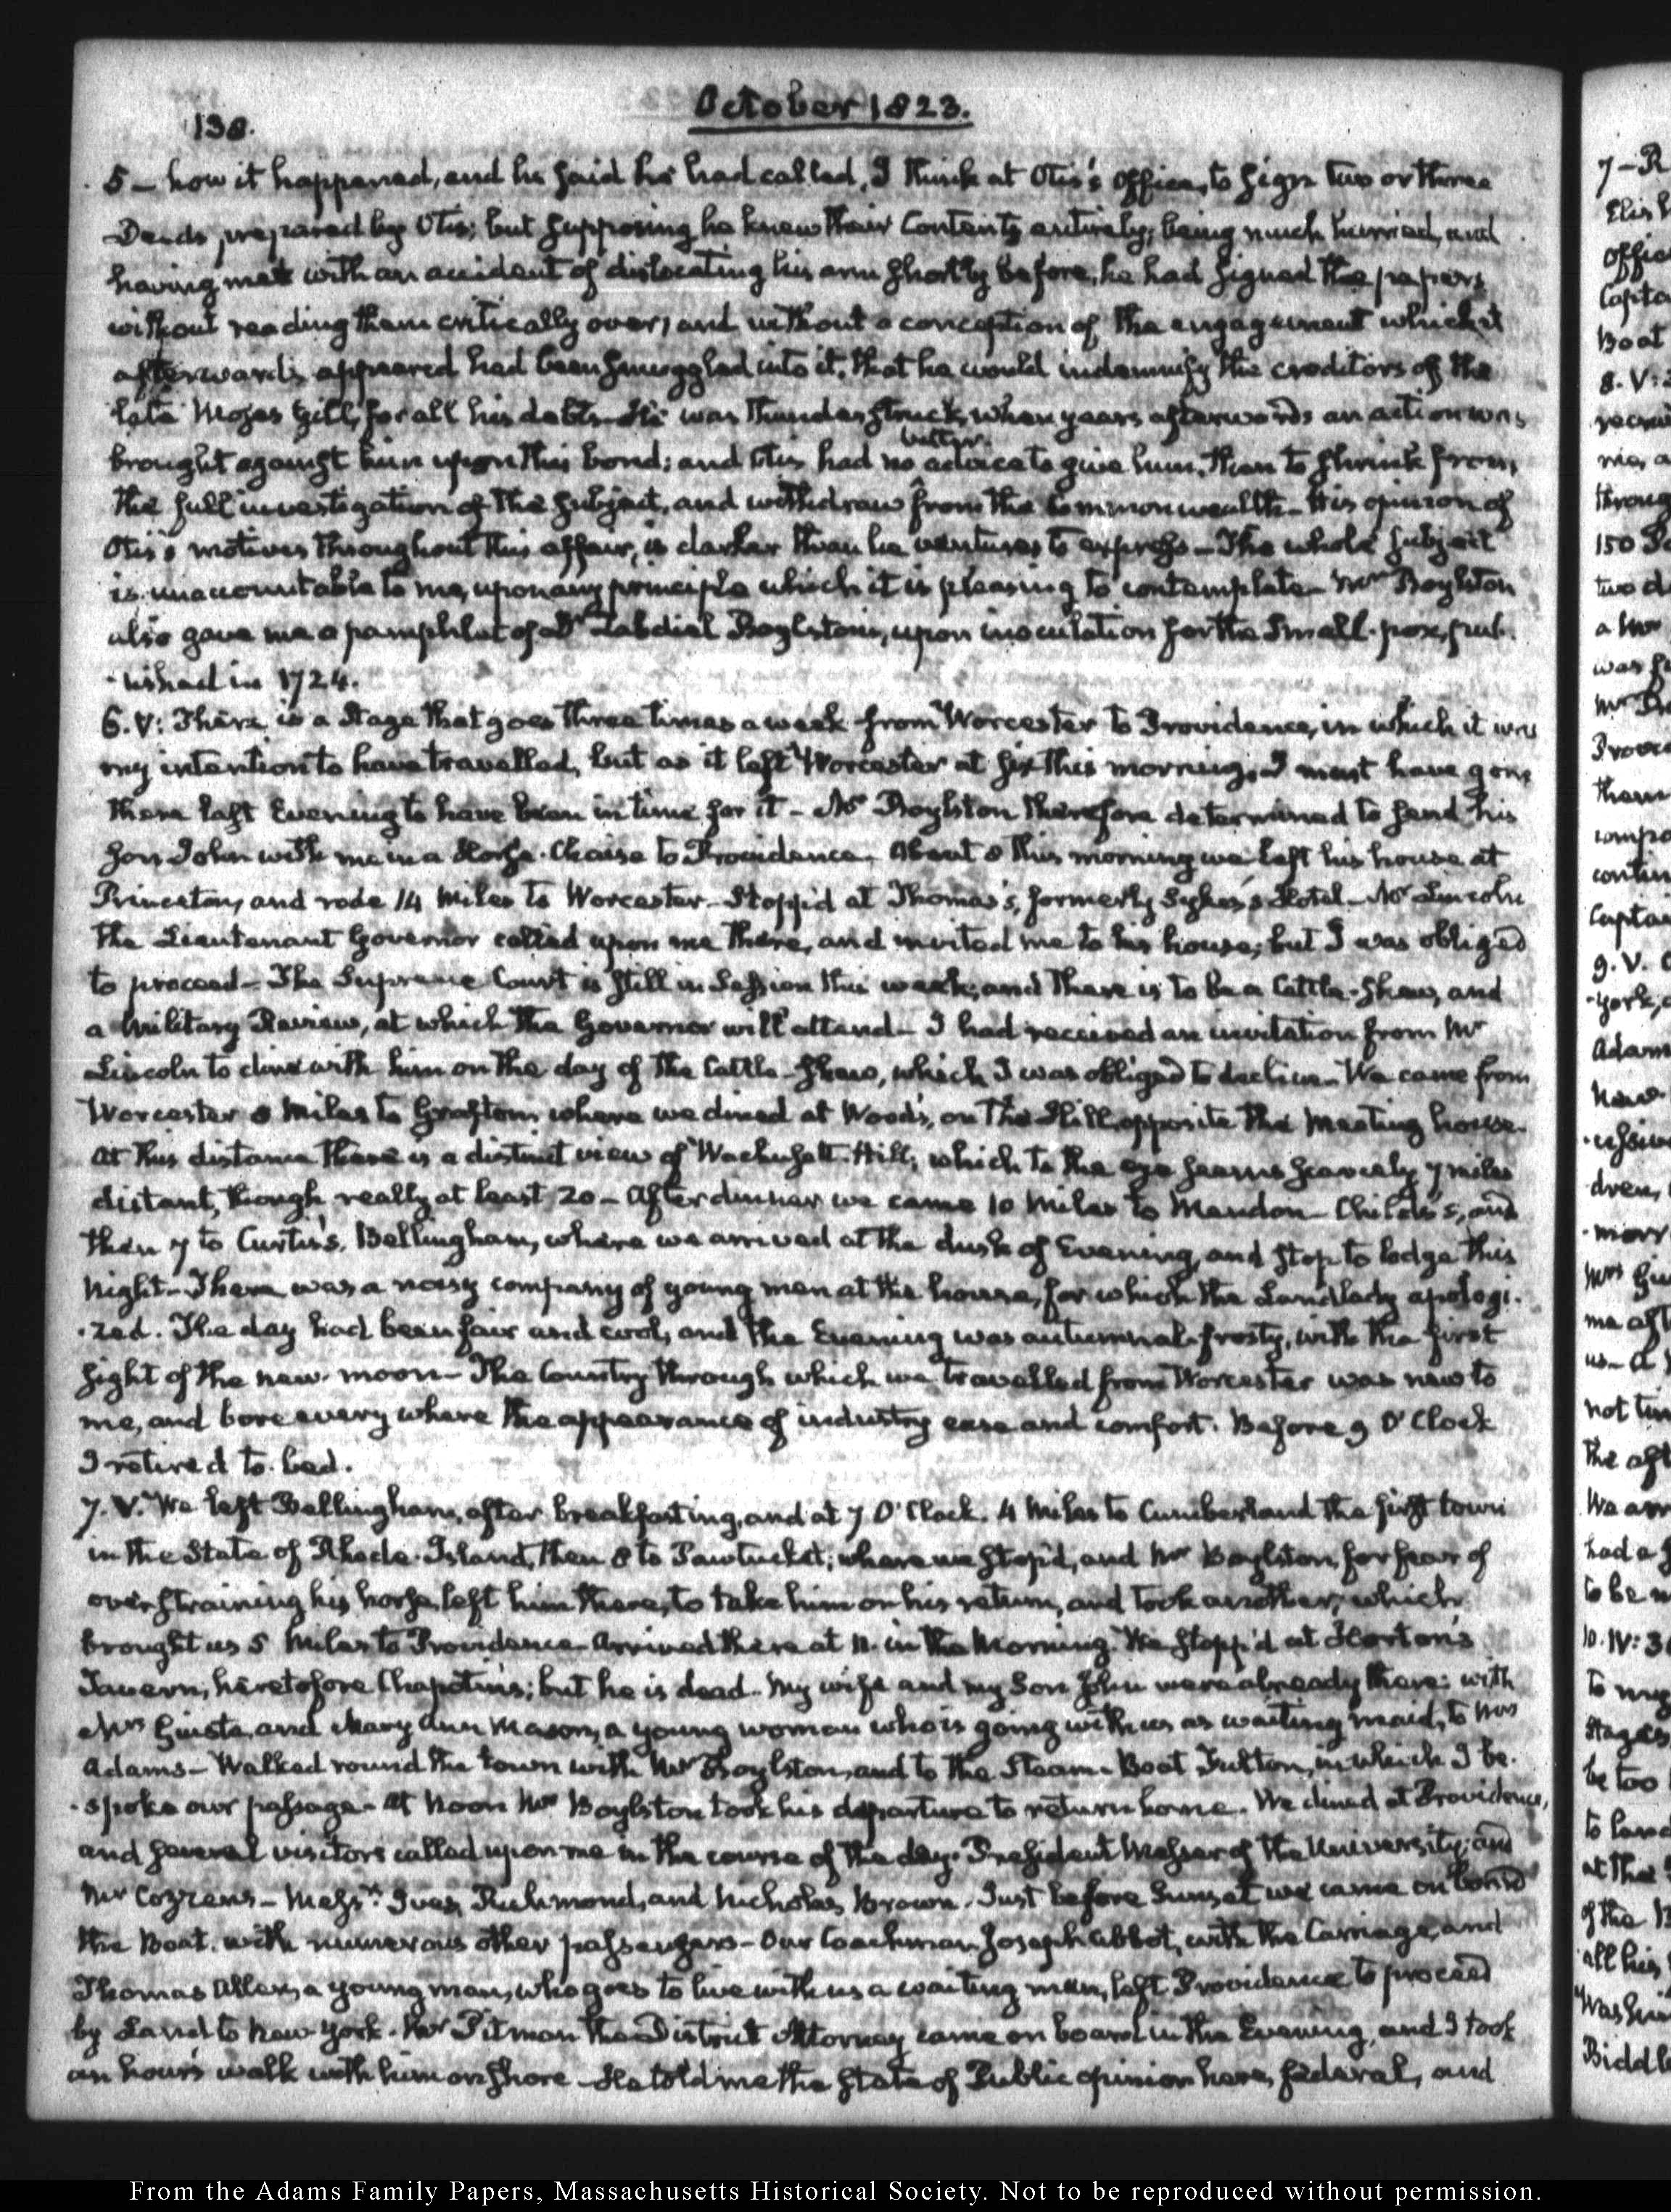 138.
October 1823.
5 – how it happened, and he said he had called, I think at Otis's office, to sign two or three
Deeds prepared by Otis; but supposing he knew their Contents entirely; being much hurried, and
having met with an accident of dislocating his arm shortly before, he had signed the papers
without reading them critically over, and without a conception of the engagement which it
afterwards appeared had been smuggled into it, that he would indemnify the creditors of the
late Moses Gill, for all his debts. He was thunderstruck, when years afterwards an action was
brought against him upon this bond; and Otis had no better advice to give him, than to shrink from
the full investigation of the subject, and withdraw from the Commonwealth – His opinion of
Otis's motives throughout this affair, is darker than he ventures to express – The whole subject
is unaccountable to me, upon any principle which it is pleasing to contemplate – Mr Boylston
also gave me a pamphlet of Dr Zabdiel Boylston's, upon inoculation for the Small-pox, pub-
-lished in 1724.
6. V: There is a Stage that goes three times a week from Worcester to Providence, in which it was
my intention to have travelled, but as it left Worcester at six this morning, I must have gone
there last Evening to have been in time for it – Mr Boylston therefore determined to send his
Son John with me in a Horse-Chaise to Providence. About 8 this morning we left his house at
Princeton, and rode 14 Miles to Worcester – Stopp'd at Thomas's, formerly Sykes's Hotel – Mr Lincoln
the Lieutenant Governor called upon me there, and invited me to his house; but I was obliged
to proceed – The Supreme Court is still in Session this week; and there is to be a Cattle-Show, and
a Military Review, at which the Governor will attend – I had received an invitation from Mr
Lincoln to dine with him on the day of the Cattle-Show, which I was obliged to decline – We came from
Worcester 8 Miles to Grafton, where we dined at Wood's, on the Hill, opposite the Meeting house.
At this distance there is a distinct view of Wachusett-Hill, which to the eye seems scarcely 7 miles
distant, though really at least 20 – After dinner we came 10 Miles to Mendon – Childs's, and
then 7 to Curtis's, Bellingham, where we arrived at the dusk of Evening, and stop to lodge this
Night – There was a noisy company of young men at the house, for which the Landlady apologi-
-zed. The day had been fair and cool, and the Evening was autumnal-frosty, with the first
sight of the new-moon – The Country through which we travelled from Worcester was new to
me, and bore every where the appearance of industry ease and comfort. Before 9 O'Clock
I retired to bed.
7. V. We left Bellingham, after breakfasting, and at 7 O'Clock. 4 Miles to Cumberland the first town
in the State of Rhode-Island, then 8 to Pawtucket; where we stop'd, and Mr Boylston, for fear of
overstraining his horse, left him there, to take him on his return, and took another, which
brought us 5 Miles to Providence – Arrived there at 11. in the Morning. We stopp'd at Horton's
Tavern, heretofore Chapotin's; but he is dead. My wife and my Son John were already there: with
Mrs Giusta, and Mary Ann Mason, a young woman who is going with us as waiting maid, to Mrs
Adams – Walked round the town with Mr Boylston, and to the Steam-Boat Fulton, in which I be-
-spoke our passage – At Noon Mr Boylston took his departure to return home. We dined at Providence,
and several visitors called upon me in the course of the day. President Messer of the University; and
Mr Cozzens – Messrs. Ives, Richmond, and Nicholas Brown. Just before Sunset we came on board
the Boat, with numerous other passengers – Our Coachman Joseph Abbot, with the Carriage, and
Thomas Allen, a young man, who goes to live with us a waiting man, left Providence to proceed
by Land to New-York. Mr Pitman the District Attorney came on board in the Evening, and I took
an hour's walk with him on shore – He told me the state of Public opinion here, federal, and
From the Adams Family Papers, Massachusetts Historical Society. Not to be reproduced without permission.